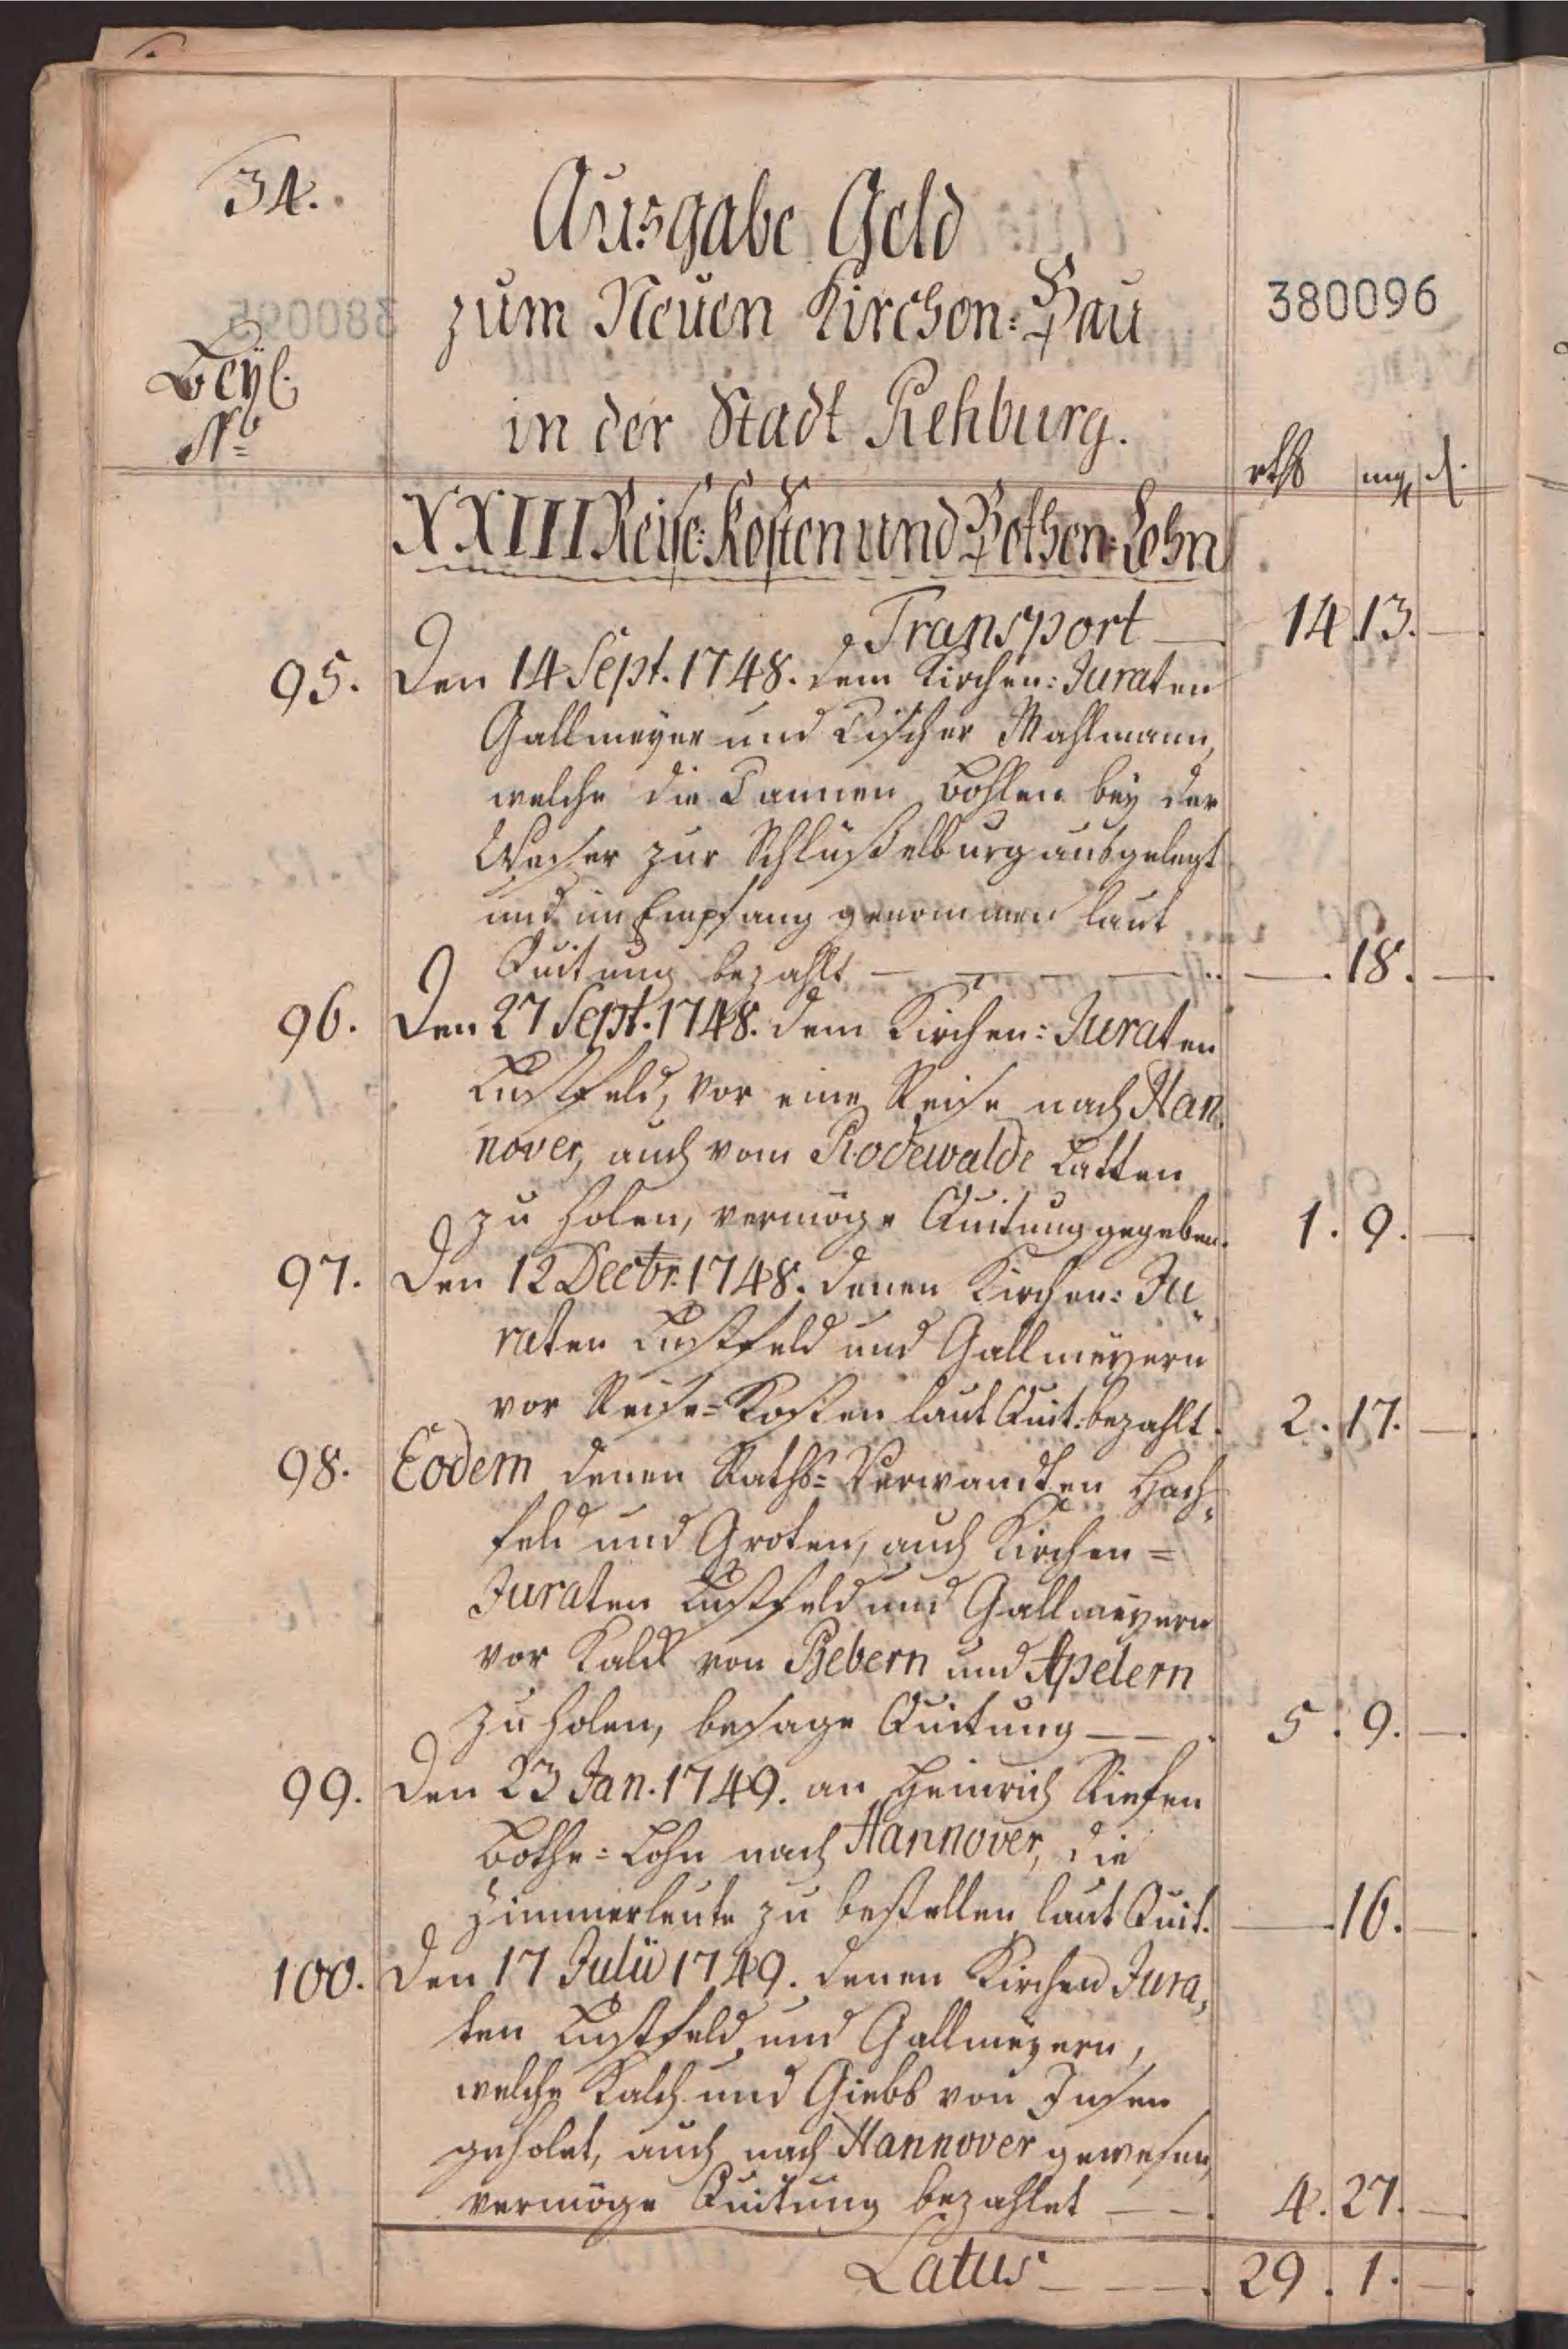 34.
Ausgabe Geld
zum Neuen Kirchen=Bau
in der Stadt Rehburg.
380096
Beyl.
No
rthl mg d.
XXIII Reise=Kosten und Bothen=Lohn
Transport — 14. 13. —
95. Den 14 Sept. 1748. dem Kirchen=Juraten
Gallmeyer und Tischer Mahlmann,
welche die Tannen Bohlen bey der
Weser zur Schlüßelburg ausgelegt
und in Empfang genommen laut
Quitung bezahlt — — — — — . 18. —
96. Den 27 Sept. 1748. dem Kirchen=Juraten
Lustfeld, vor eine Reise nach Han
nover, auch vom Rodewalde Latten
zu holen, vermöge Quitung gegeben. 1. 9. —
97. Den 12 Decbr. 1748. denen Kirchen=Ju
raten Lustfeld und Gallmeyern
vor Reise=Kosten laut Quit: bezahlt. 2. 17. —
98. Eodem denen Raths=Verwandten Hach
feld und Groten, auch Kirchen=
Juraten Lustfeld und Gallmeyern
vor Kalck von Bebern und Apelern
zu holen, besage Quitung — — 5. 9. —
99. Den 23 Jan. 1749. an Heinrich Kiefen
Bothe=Lohn nach Hannover, die
Zimmerleute zu bestellen laut Quit. — . 16. —
100. Den 17 Julii 1749. denen Kirchen Jura,
ten Lustfeld und Gallmeyern,
welche Kalch und Giebs von
geholet, auch nach Hannover gewesen,
vermöge Quitung bezahlet — — . 4. 27. —
Latus — — — . 29. 1. —